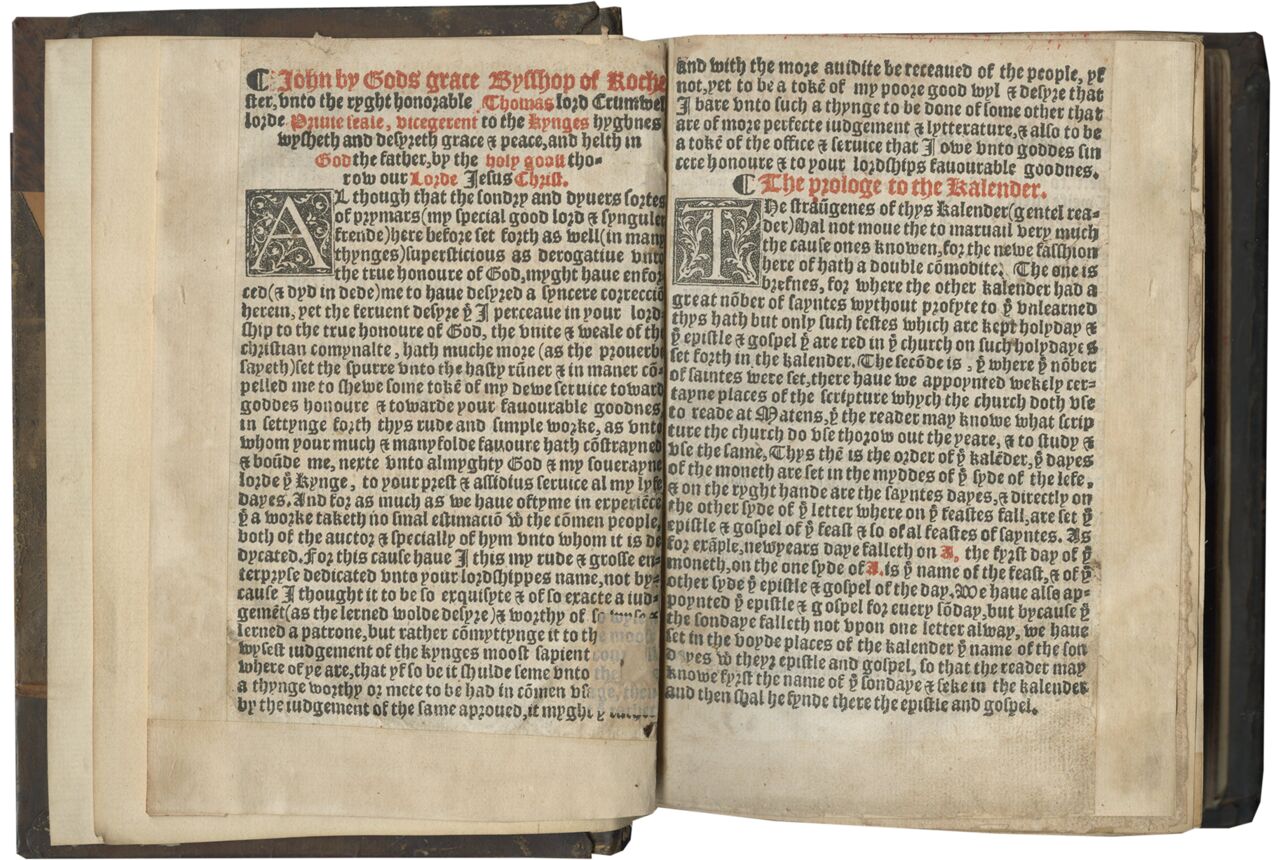 ¶ John by Gods grace Bysshop of Roche
ster, vnto the ryght honorable Thomas lord Crumwel
lorde Priuie seale, vicegerent to the kynges hyghnes
wysheth and desyreth grace & peace, and helth in
God the father, by the holy goost tho-
row our Lorde Jesus Christ.
AL though that the sondry and dyuers sortes
of prymars (my special good lord & synguler
frende) here before set forth as well (in many
thynges) supersticious as derogatiue vnto
the true honoure of God, myght haue enfor
ced (& dyd in dede) me to haue desyred a syncere correcciō
herein, yet the feruent desyre yͤ I perceaue in your lord
ship to the true honoure of God, the vnite & weale of the
christian comynalte, hath muche more (as the prouerbe
sayeth) set the spurre vnto the hasty rūner & in maner cō-
pelled me to shewe some tokē of my dewe seruice toward
goddes honoure & towarde your fauourable goodnes,
in settynge forth thys rude and simple worke, as vnto
whom your much & manyfolde fauoure hath cōstrayned
& boūde me, nexte vnto almyghty God & my souerayne
lorde yͤ kynge, to your prest & assidius seruice al my lyfe
dayes. And for as much as we haue oftyme in experiēce
yͤ a worke taketh no smal estimaciō wͭ the cōmen people,
both of the auctor & specially of hym vnto whom it is de
dycated. For this cause haue I this my rude & grosse en-
terpryse dedicated vnto your lordshippes name, not by-
cause I thought it to be so exquisyte & of so exacte a iud-
gemēt (as the lerned wolde desyre) & worthy of so wyse &
lerned a patrone, but rather cōmyttynge it to the moost
wysest iudgement of the kynges moost sapient
where of ye are, that yf so be it shulde seme vnto the
a thynge worthy or mete to be had in cōmen vsage, then
by the iudgement of the same aproued, it myght yͤ rather
and with the more auidite be receaued of the people, yf
not, yet to be a tokē of my poore good wyl & desyre that
I bare vnto such a thynge to be done of some other that
are of more perfecte iudgement & lytterature, & also to be
a tokē of the office & seruice that I owe vnto goddes sin
cere honoure & to your lordships fauourable goodnes.
¶ The prologe to the Kalender.
THe straūgenes of thys Kalender (gentel rea-
der) shal not moue the to maruail very much
the cause ones knowen, for the newe fasshion
here of hath a double cōmodite. The one is
brefnes, for where the other kalender had a
great nōber of sayntes wythout profyte to yͤ vnlearned
thys hath but only such festes which are kept holyday &
yͤ epistle & gospel yͤ are red in yͤ church on such holydayes
set forth in the kalender. The secōde is, yͤ where yͤ nōber
of saintes were set, there haue we appoynted wekely cer-
tayne places of the scripture whych the church doth vse
to reade at Matens, yͤ the reader may knowe what scrip
ture the church do vse thorow out the yeare, & to study &
vse the same, Thys thē is the order of yͤ kalēder, yͤ dayes
of the moneth are set in the myddes of yͤ syde of the lefe,
& on the ryght hande are the sayntes dayes, & directly on
the other syde of yͤ letter where on yͤ feastes fall, are set yͤ
epistle & gospel of yͤ feast & so of al feastes of sayntes. As
for exāple, newyears daye falleth on A, the fyrst day of yͤ
moneth, on the one syde of A. is yͤ name of the feast, & of yͤ
other syde yͤ epistle & gospel of the day. We haue also ap-
poynted yͤ epistle & gospel for euery sōday, but bycause yͤ
the sondaye falleth not vpon one letter alway, we haue
set in the voyde places of the kalender yͤ name of the son
dayes wͭ theyr epistle and gospel, so that the reader may
knowe fyrst the name of yͤ sondaye & seke in the kalender
and then shal he fynde there the epistle and gospel.